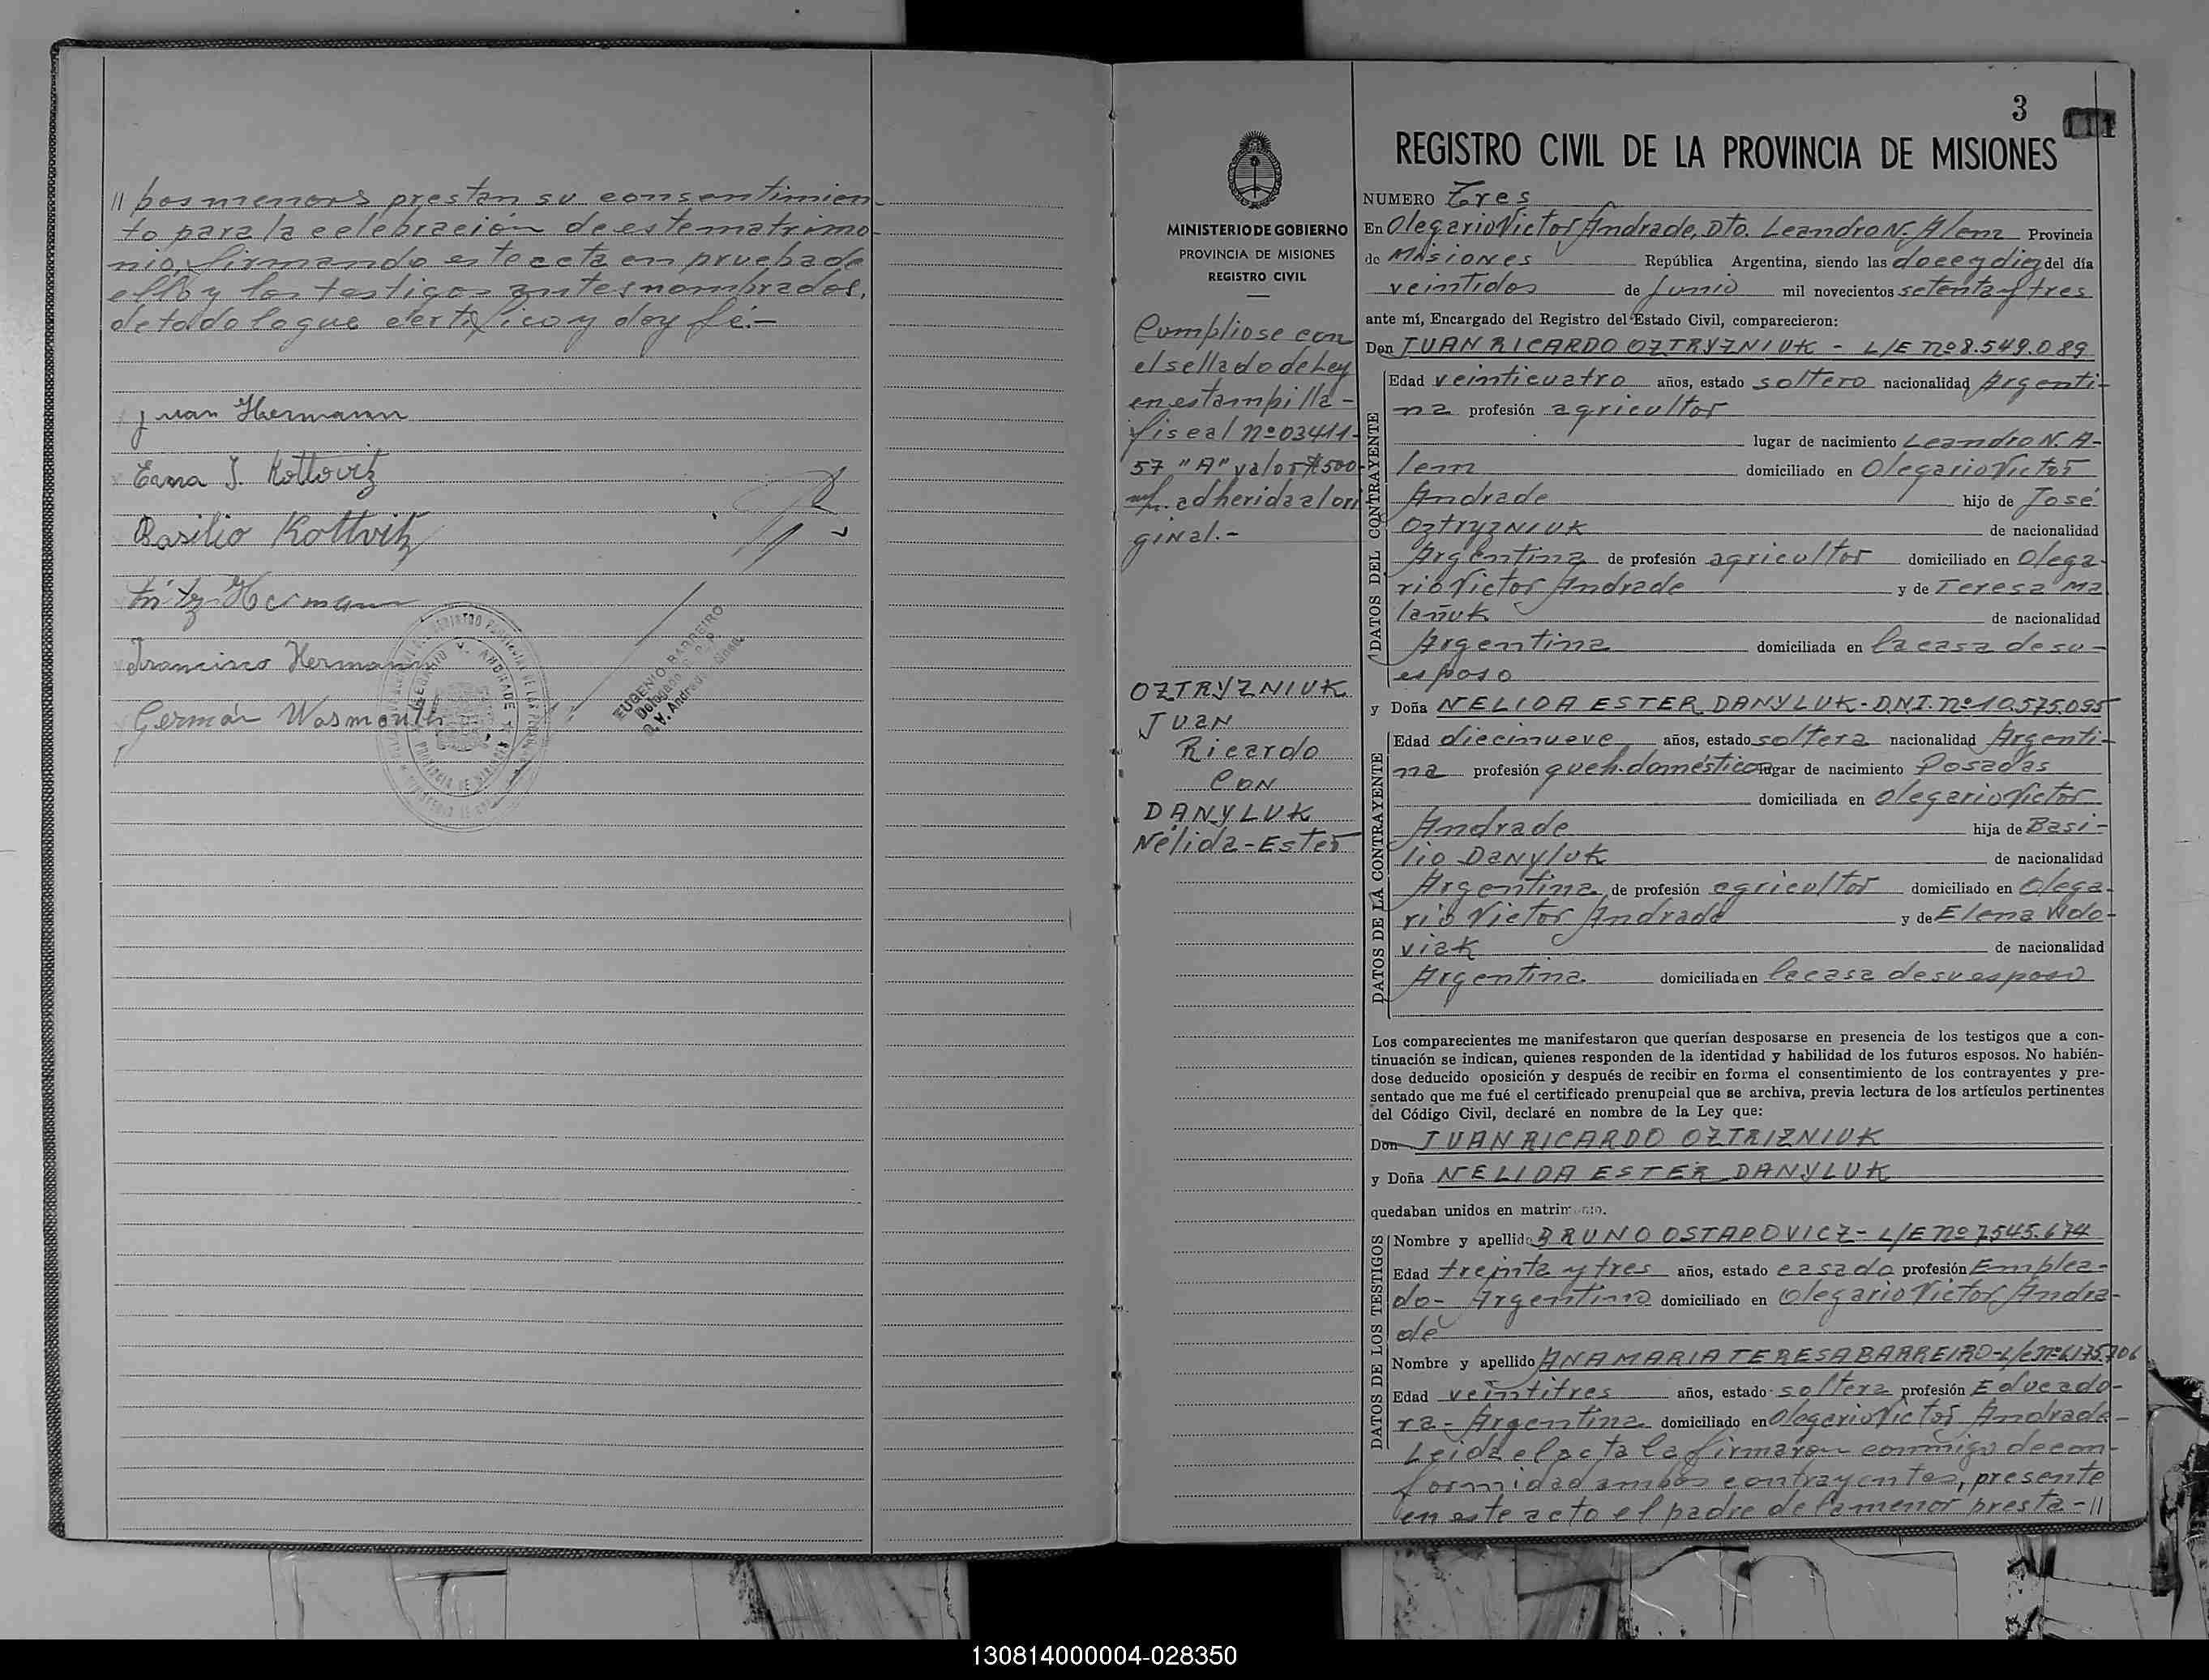 // bos menores prestan su consentimien-
to para la celebración de este matrimo-
nio, firmando este acta en prueba de
ello y los testigos antes nombrados,
de todo lo que certifico y doy fé.-
Juan Hermann
Erna I. Kottvitz
Basilio Kottvitz
Fritz Hermann
Francisco Hermann
Germán Wasmouth
EUGENIO BARREIRO
O. V. Andrade
MINISTERIO DE GOBIERNO
PROVINCIA DE MISIONES
REGISTRO CIVIL
Cumpliose con
el sellado de Ley
en estampilla-
fiscal nº 03411-
57 "A" valor $ 500-
adherida al ori
ginal.-
OZTRYZNIUK
Juan
Ricardo
CON
DANYLUK
Nélida-Ester
3
REGISTRO CIVIL DE LA PROVINCIA DE MISIONES
NUMERO Tres
En Olegario Victor Andrade, Dto. Leandro N. Alem Provincia
de Misiones República Argentina, siendo las doce y diez del día
veintidos de Junio mil novecientos setenta y tres
ante mí, Encargado del Registro del Estado Civil, comparecieron:
Don JUAN RICARDO OZTRYZNIUK - L/E nº 8.549.089
DATOS DEL CONTRAYENTE
Edad veinticuatro años, estado soltero nacionalidad Argenti-
na profesión agricultor
lugar de nacimiento Leandro N. A-
lem domiciliado en Olegario Victor
Andrade hijo de José
Oztryzniuk de nacionalidad
Argentina de profesión agricultor domiciliado en Olega-
rio Victor Andrade y de Teresa Ma
lañuk de nacionalidad
Argentina domiciliada en la casa de su-
esposo
y Doña NELIDA ESTER DANYLUK - DNI. nº 10.575.095
DATOS DE LA CONTRAYENTE
Edad diecinueve años, estado soltera nacionalidad Argenti-
na profesión queh. domésticos lugar de nacimiento Posadas
domiciliada en Olegario Victor
Andrade hija de Basi-
lio Danyluk de nacionalidad
Argentina de profesión agricultor domiciliado en Olega-
rio Victor Andrade y de Elena Wdo-
viak de nacionalidad
Argentina domiciliada en la casa de su esposo
Los comparecientes me manifestaron que querían desposarse en presencia de los testigos que a con-
tinuación se indican, quienes responden de la identidad y habilidad de los futuros esposos. No habién-
dose deducido oposición y después de recibir en forma el consentimiento de los contrayentes y pre-
sentado que me fué el certificado prenupcial que se archiva, previa lectura de los artículos pertinentes
del Código Civil, declaré en nombre de la Ley que:
Don JUAN RICARDO OZTRIZNIUK
y Doña NELIDA ESTER DANYLUK
quedaban unidos en matrimonio.
DATOS DE LOS TESTIGOS
Nombre y apellido BRUNO OSTAPOVICZ - L/E nº 7.545.674
Edad treinta y tres años, estado casado profesión Emplea-
do- Argentino domiciliado en Olegario Victor Andra-
de
Nombre y apellido ANA MARIA TERESA BARREIRO - L/C nº 6.175.706
Edad veintitres años, estado soltera profesión Educado-
ra- Argentina domiciliado en Olegario Victor Andrade-
Leida el acta la firmaron conmigo de con-
formidad ambos contrayentes, presente
en este acto el padre de la menor presta- //
130814000004-028350